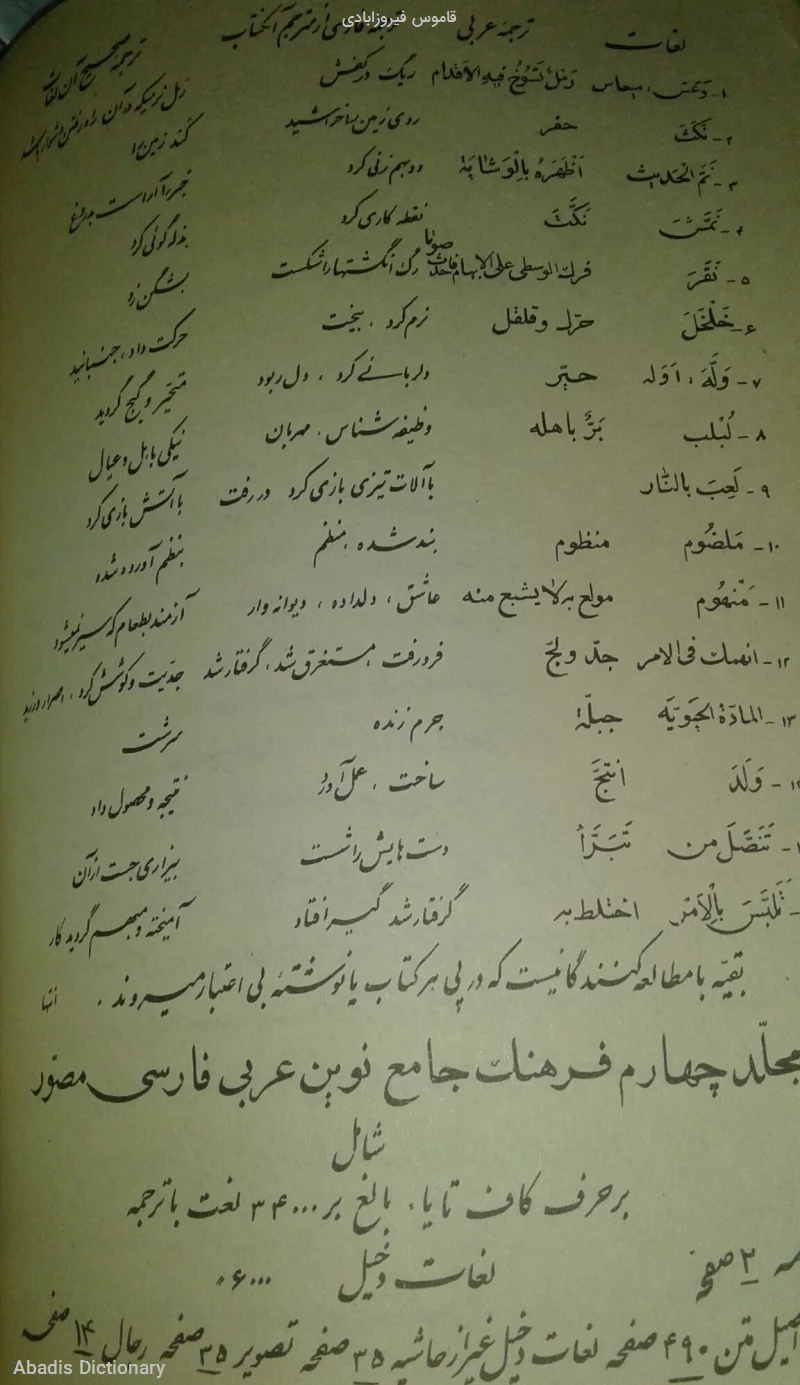 قاموس فیروزابادی
لغات ترجمهٔ عربی ترجمهٔ فارسی از مترجم الکتاب ترجمهٔ صحیح آن لغات
۱- دَعَس، میعاس رَملٌ تَسُوخُ فیهِ الاَقدام ریگ در کفش رمل نرمیکه در آن راه رفتن دشوار باشد
۲- نَکَتَ حفر روی زمین را خراشید کند زمین را
۳- نَمَّ الحَدیث اَظهَرَهُ بِالوِشایَة دو بهم زنی کرد
۴- نَمَّشَ نَکَّتَ نقطه کاری کرد بذله گوئی کرد
۵- نَقَرَ فرك الوسطی علی الابهام فاحدث صوتا رگ انگشتها را شکست بشگن زد
۶- خَلخَلَ حرّك وقلقل نرم کرد، بیخت حرکت داد، جنبانید
۷- وَلَّهَ، اَوله حیّر دلربائی کرد، دل ربود متحیر و گیج گردید
۸- لُبلب بَرٌّ باهله وظیفه شناس، مهربان نیکی باهل و عیال
۹- لَعِبَ بالنّار باآلات تیزی بازی کرد در رفت باآتش بازی کرد
۱۰- مَلضُوم منظوم بند شده، منظم بنظم آورده شده
۱۱- مَنهُوم مولع به لا یشبع منه عاشق، دلداده، دیوانه وار آزمند بطعام که سیر نمیشود
۱۲- انهمك فی الامر جدّ ولجّ فرو رفت، مستغرق شد، گرفتار شد جدیت و کوشش کرد، اصرار ورزید
۱۳- المادّة الحَیَویَّه جبلّة جرم زنده سرشت
- وَلَّدَ انتجَ ساخت، عمل آورد نتیجه و محصول داد
- تَنَصَّلَ من تَبَرَّأَ دست هایش را شست بیزاری جست از آن
- تَلَبَّسَ بِالاَمر اختلط به گرفتار شد گیر افتاد آمیخته و مبهم گردید کار
بقیّه با مطالعه کنندگانیست که در پی هر کتاب یا نوشتهٔ بی اعتبار میروند. انتها
مجلّد چهارم فرهنك جامع نوین عربی فارسی مصوّر
شامل
بر حرف کاف تا یا، بالغ بر ۳۴۰۰۰ لغت با ترجمه
۲ صفحه لغات دخیل ۶۰۰۰
اصل متن ۴۹۰ صفحه لغات دخیل غیر از حاشیه ۳۵ صفحه تصویر ۳۵ صفحه رجال ۱۴ صفحه
Abadis Dictionary